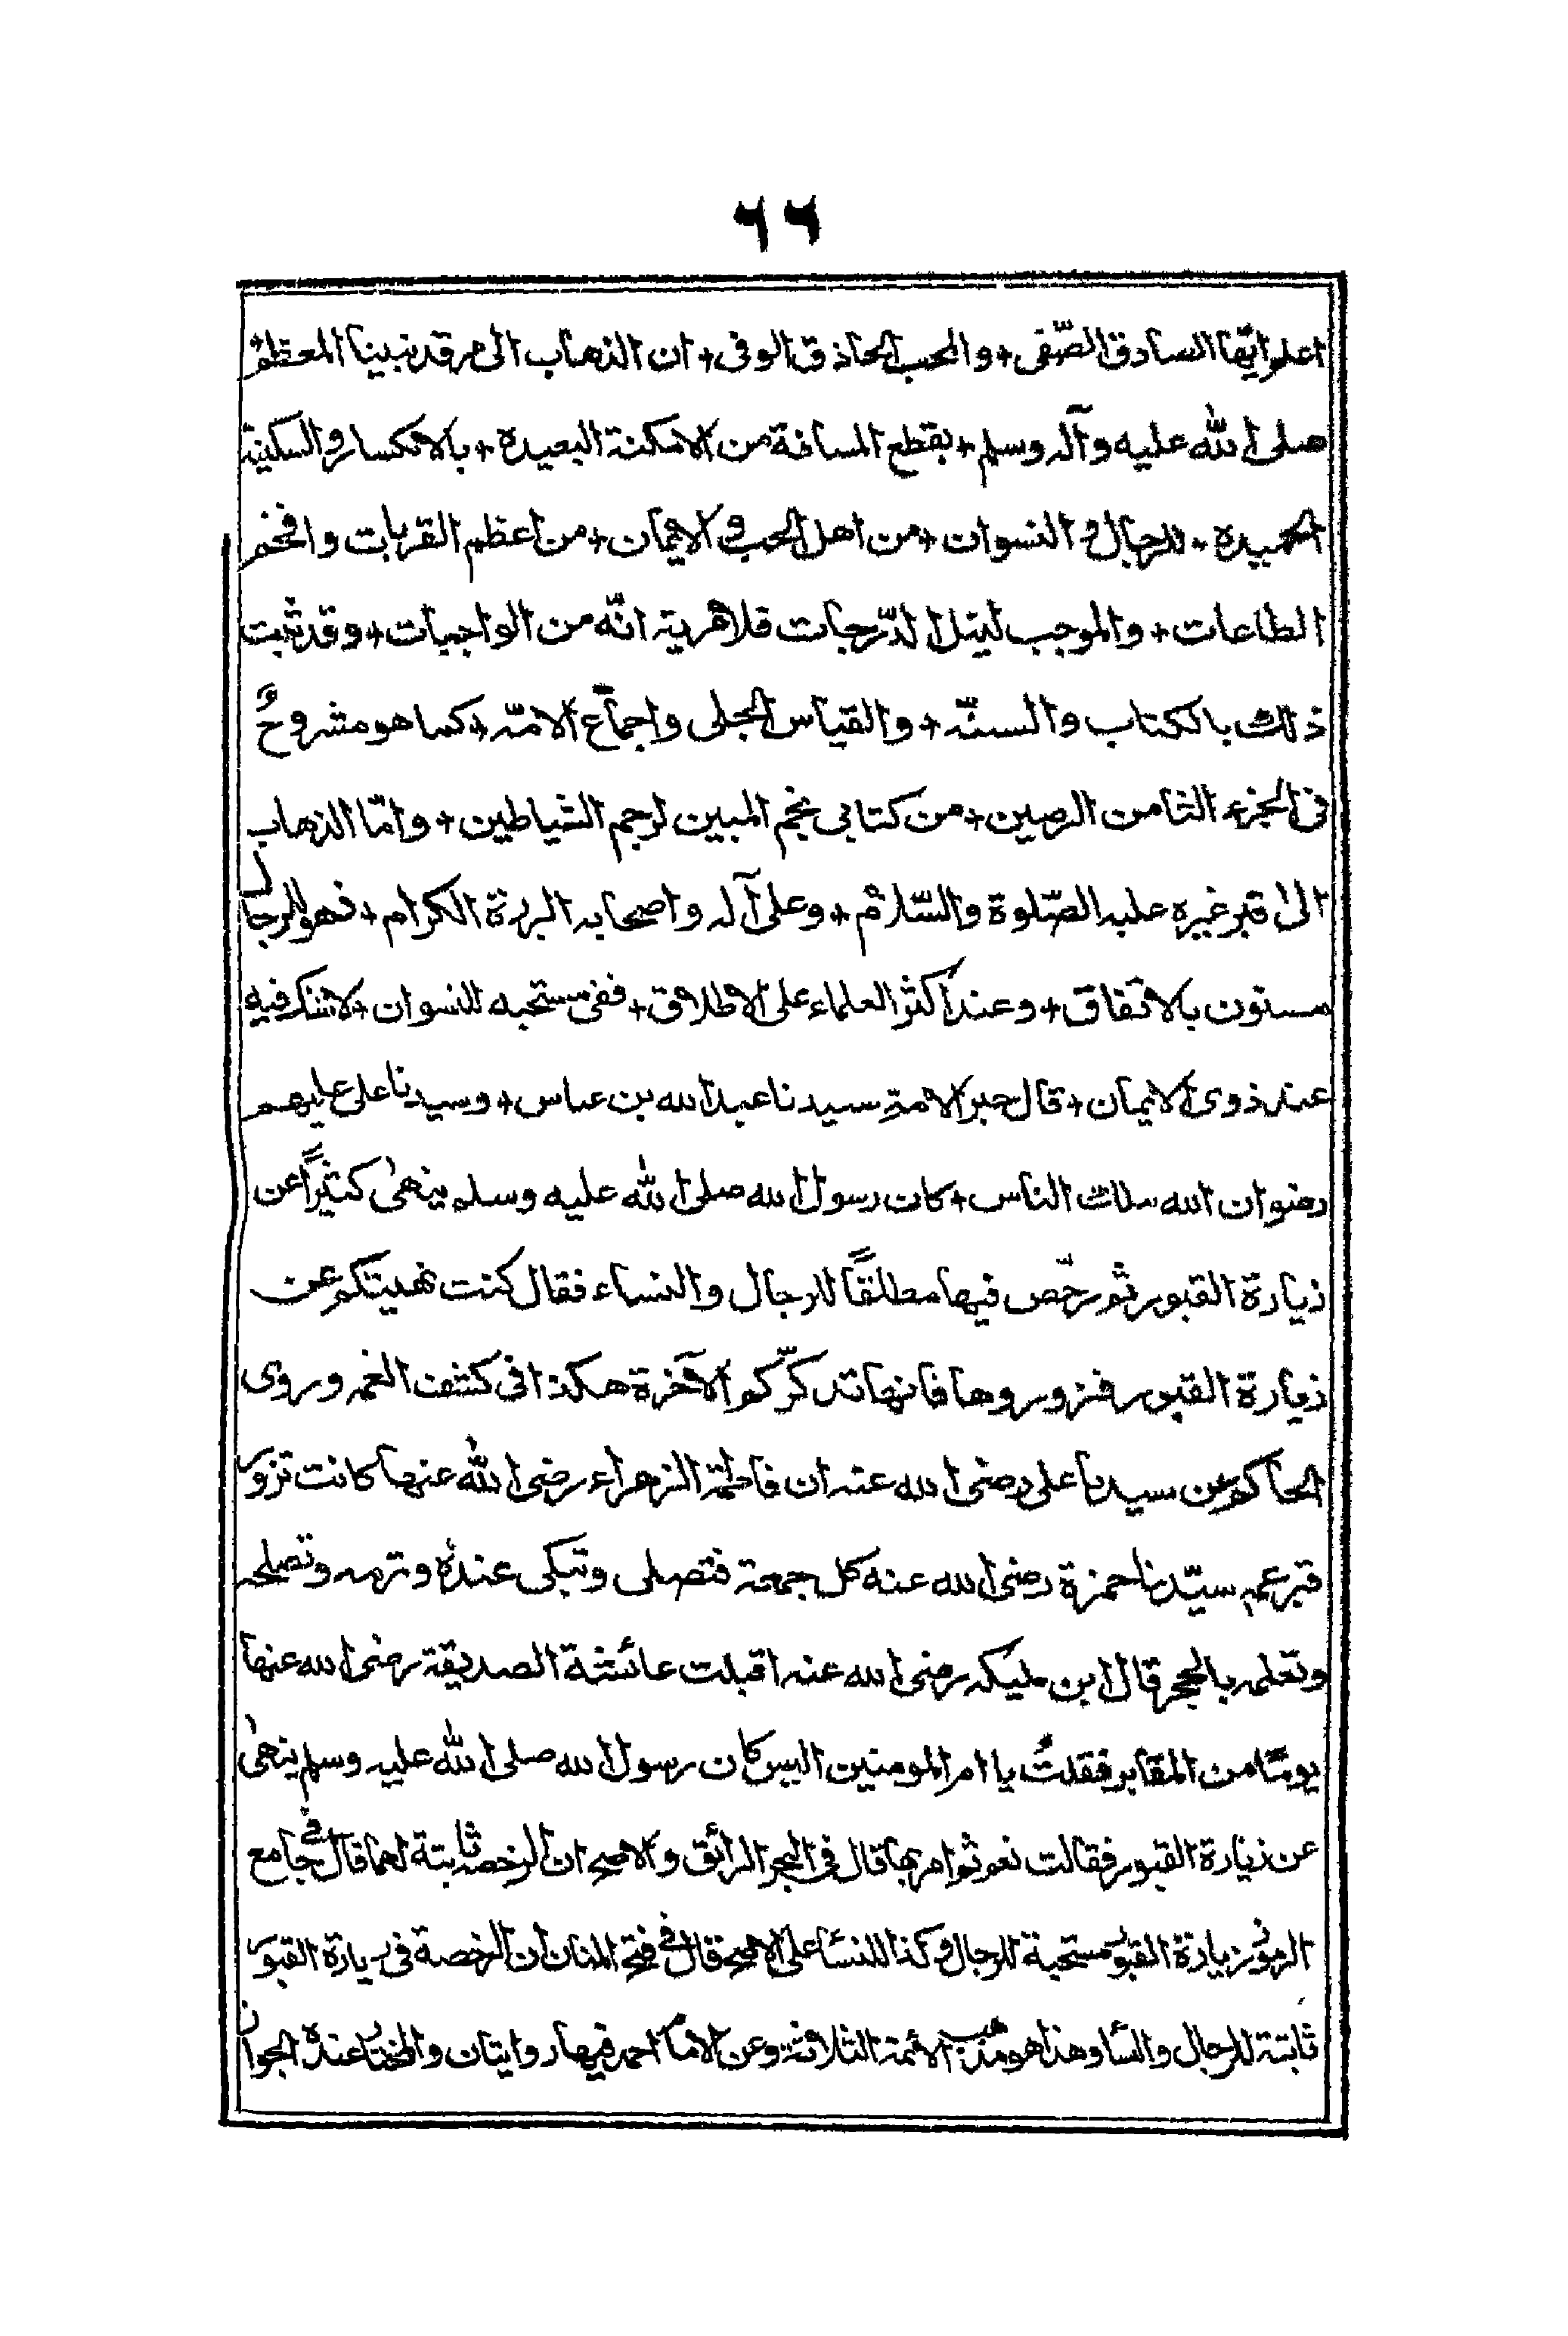 ٦٦
اعلم ايّها السادق الصّفى + والمحب الحاذق الوفى + ان الذهاب الى مرقد نبينا المعظم
صلى الله عليه وآله وسلم + بقطع المسافة من الامكنة البعيدة + بالانكسار والسكينة
الحميدة + للرجال والنسوان + من اهل الحب والايمان + من اعظم القربات وافخم
الطاعات + والموجب لنيل الدّرجات فلا مرية انّه من الواجبات + وقد ثبت
ذلك بالكتاب والسنّه + والقياس الجلى واجماع الامّه + كما هو مشروحٌ
فى الجزء الثامن الرصين + من كتابى نجم المبين لرجم الشياطين + وامّا الذهاب
الى قبر غيره عليه الصّلوة والسّلام + وعلى آله واصحابه البررة الكرام + فهو للرجال
مسنون بالاتفاق + وعند اكثر العلماء على الاطلاق + ففى مستحبه للنسوان + لاشك فيه
عند ذوى الايمان + قال حبر الامةِ سيدنا عبد الله بن عباس + وسيدنا على عليهم
رضوان الله ملك الناس + كان رسول الله صلى الله عليه وسلم ينهىٰ كثيراً عن
زيارة القبور ثم رخّص فيها مطلقاً للرجال والنساء فقال كنت نهيتكم عن
زيارة القبور فزوروها فانها تذكّركم الآخرة هكذا فى كشف الغمه وروى
الحاكم عن سيدنا على رضى الله عنه ان فاطمة الزهراء رضى الله عنها كانت تزور
قبر عمه سيّدنا حمزة رضى الله عنه كل جمعة فتصلى وتبكى عنده وترمه وتصلحه
وتعلمه بالحجر قال ابن مليكه رضى الله عنه اقبلت عائشة الصديقة رضى الله عنها
يومًا من المقابر فقلتُ يا ام المومنين اليس كان رسول الله صلى الله عليه وسلم ينهىٰ
عن زيارة القبور فقالت نعم ثم امر بها قال فى البحر الرائق والاصح ان الرخصة ثابتة لهما قال فى جامع
الرموز زيارة القبور مستحبة للرجال وكذا للنساء على الاصح قال فى فتح المنان ان الرخصة فى زيارة القبور
ثابتة للرجال والنسأ وهذا هو مذهب الائمة الثلاثة وعن الامام احمد فيها روايتان والمختار عنده الجواز